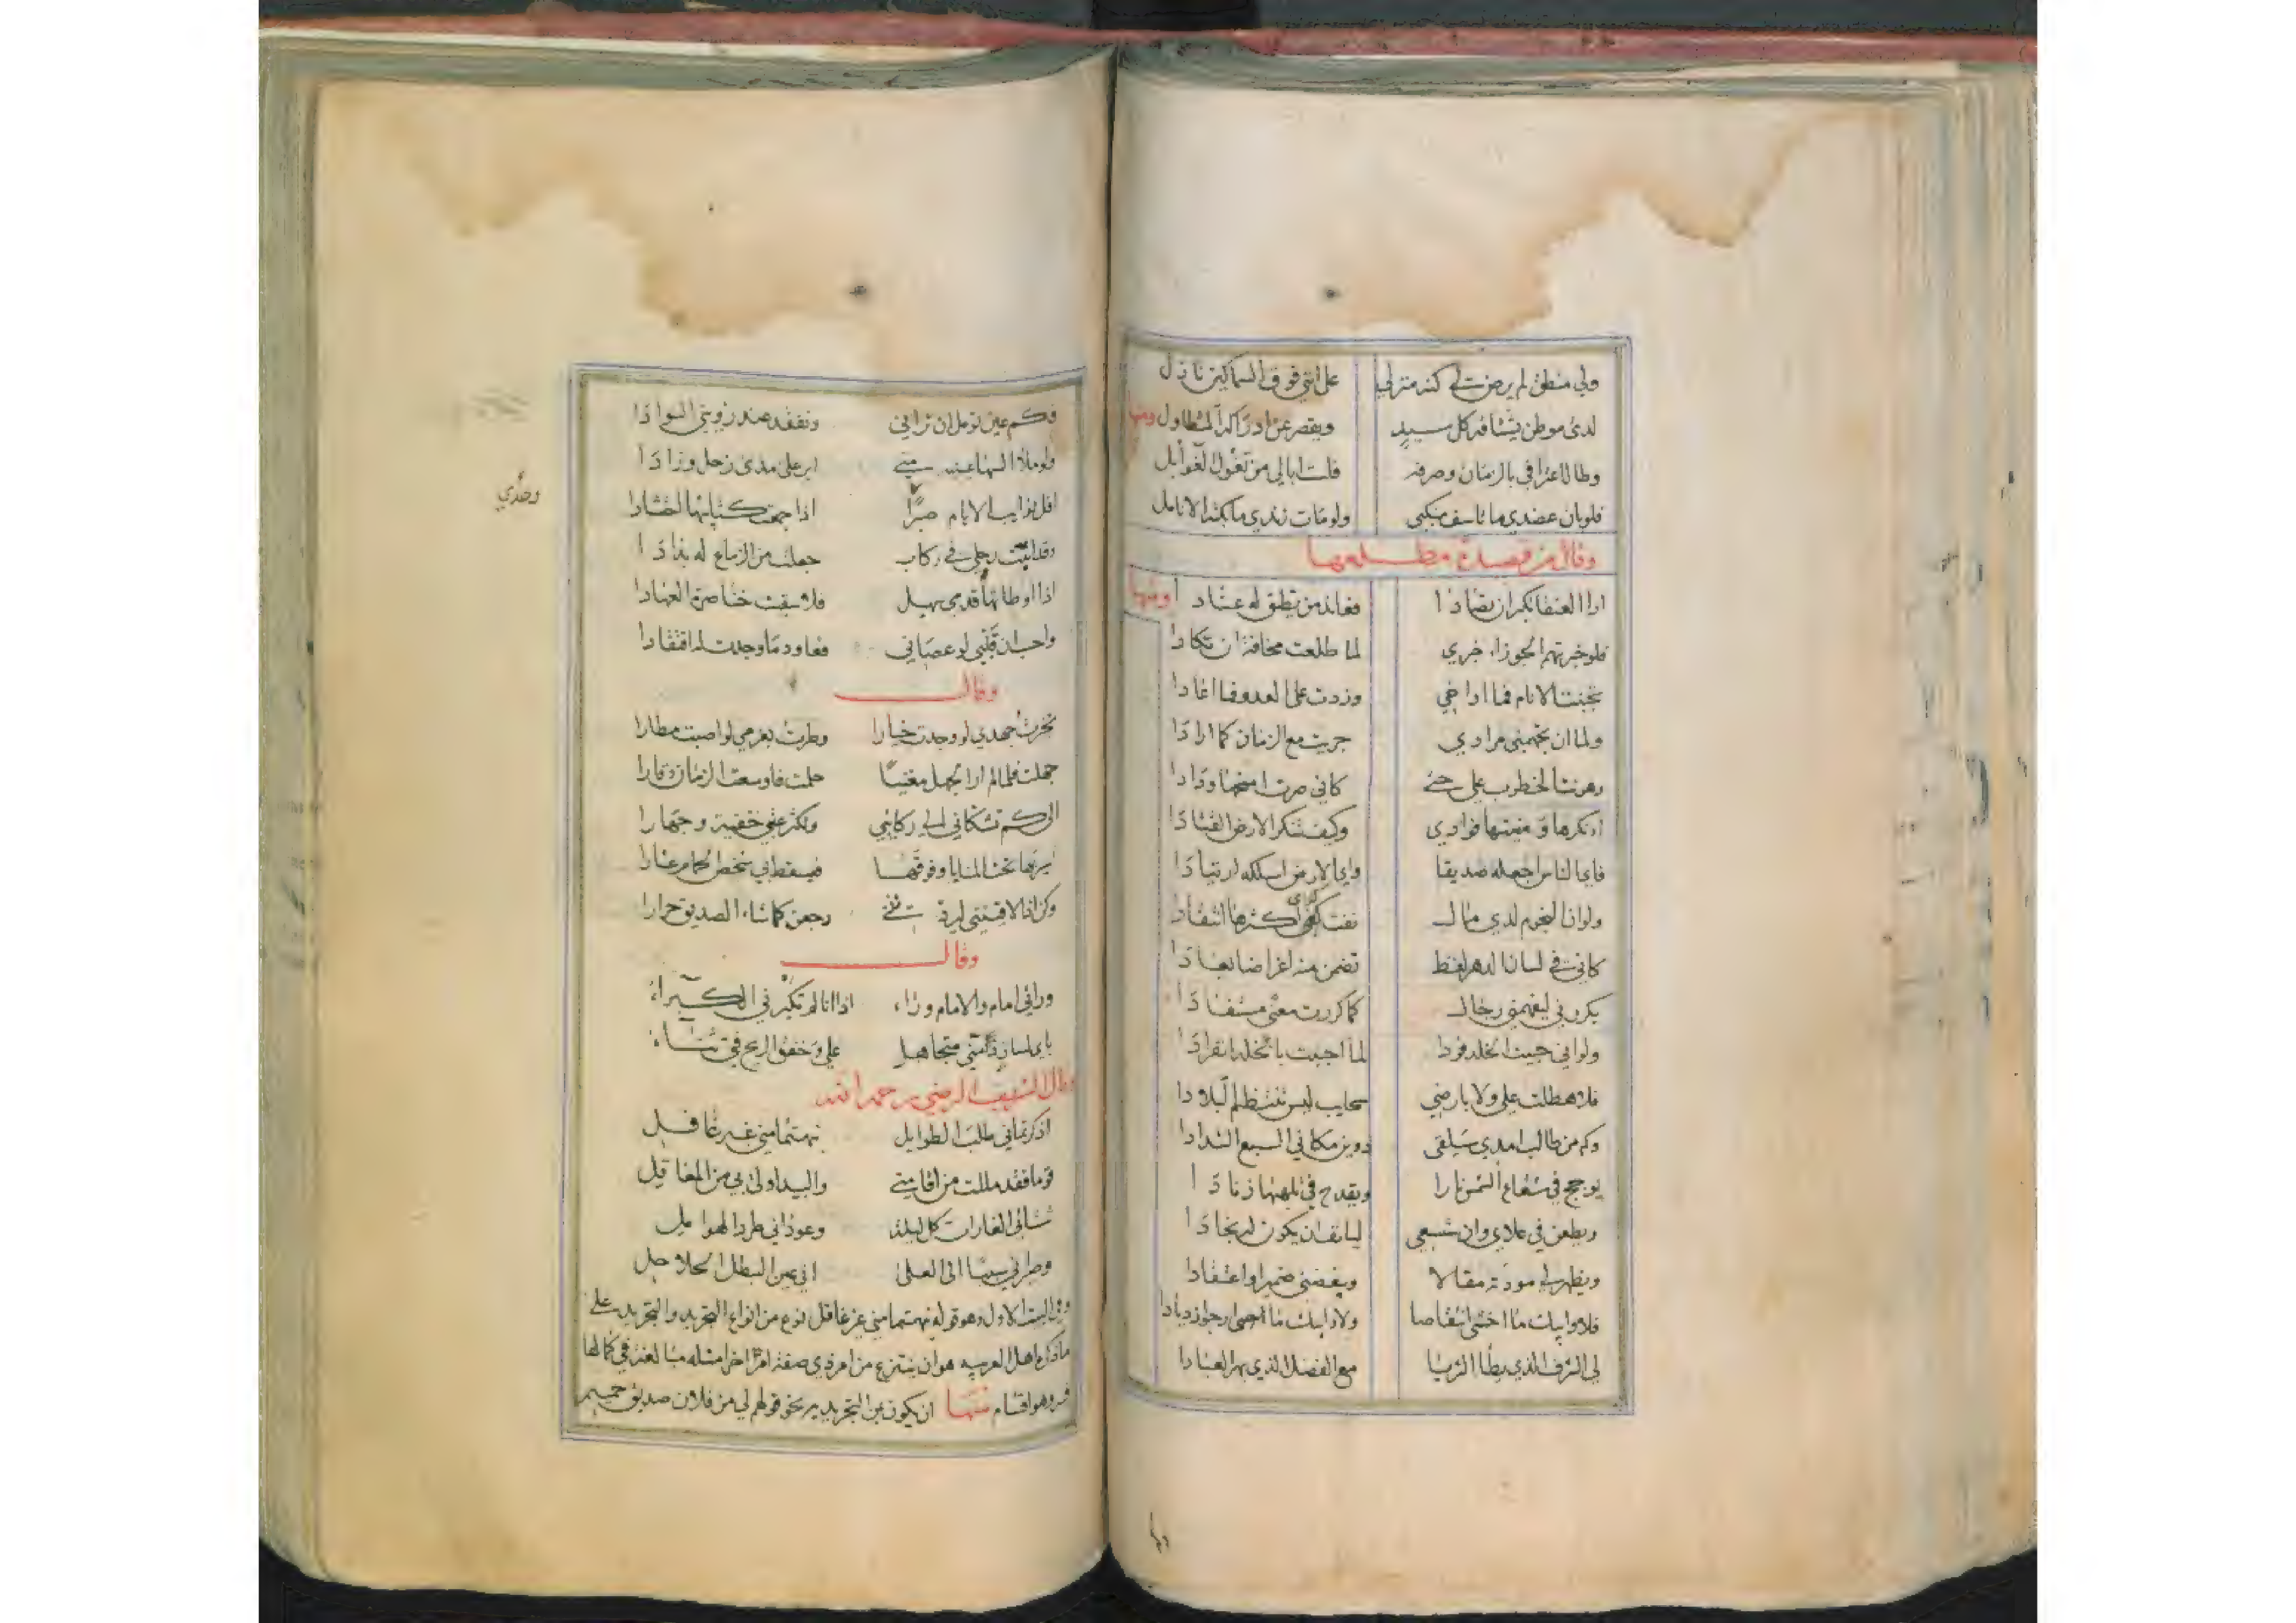 ولي منطق لم يرض لي كنه منزلي على انني فوق السماكين نازل
لدى موطن يشتاقه كل سيد ويقصر عن ادراكه المتطاول ومنها
وطال اعترافي بالزمان وصرفه فلست ابالي من تغول الغوايل
فلو بان عضدي ما تاسف منكبي ولو مات زندي ما بكته الانامل
وقال من قصيدة مطلعها
ارا العنقا تكبر ان تصادا فعاند من تطيق له عنادا ومنها
فلو خبرتهم الجوزاء خبري لما طلعت مخافة ان تكادا
تجنبت الانام فما اواخي وزدت على العدو فما اعادا
ولما ان تجهمني مرادي جريت مع الزمان كما ارادا
وهونت الخطوب علي حتى كاني صرت امنحها ودادا
اانكرها ومنبتها فوادي وكيف تنكر الارض القتادا
فاي الناس اجعله صديقا واي الارض اسلكه ارتيادا
ولو ان النجوم لدي مال نفت كفاي اكثرها انتقادا
كاني في لسان الدهر لفظ تضمن منه اغراضا بعادا
يكررني ليفهمني رجال كما كررت معنى مستفادا
ولو اني حبيت الخلد فردا لما احببت بالخلد انفرادا
فلا هطلت علي ولا بارضي سحايب ليس تنتظم البلادا
وكم من طالب امدي سيلقى دوين مكاني السبع الشدادا
يوجج في شعاع الشمس نارا ويقدح في تلهبها زنادا
ويطعن في علاي وان شسعي ليانف ان يكون له نجادا
ويظهر لي مودته مقالا ويبغضني ضميرا واعتقادا
فلا وابيك ما اخشى انتقاصا ولا وابيك ما ارجو ازديادا
لي الشرف الذي يطا الثريا مع الفضل الذي بهر العبادا
فكم عين تومل ان تراني وتفقد عند رؤيتي السوادا
ولو ملا السها عينيه مني ابر على مدى زحل وزادا
افل نوايب الايام وحدي اذا جمعت كتايبها احتشادا
وقد اثبت رجلي في ركاب جعلت من الزماع له بدادا
اذا اوطاتها قدمي سهيل فلا سقيت خناصرة العهادا
واحب ان قلبي لو عصاني فعاود ما وجدت له افتقادا
وقال
تخيرت جهدي لو وجدت خيارا وطرت بعزمي لو اصبت مطارا
جهلت فلما لم ار الجهل مغنيا حلمت فاوسعت الزمان وقارا
الى كم تشكاني الي ركايبي وتكثر عتبي خفية وجهارا
اسير بها تحت المنايا وفوقها فيسقط بي شخص الحمام عثارا
وكن اذا لاقينني ليردنني رجعن كما شاء الصديق حرارا
وقال
ورائي امام والامام وراء اذا انا لم تكبرني الكبراء
باي لسان ذامني متجاهل علي وخفق الريح في ثناء
وقال الشريف الرضي رحمه الله
اذكرتماني طلب الطوايل نبهتما مني غير غافل
قوما فقد مللت من اقامتي والبيد اولى بي من المعاقل
شنا بي الغارات كل ليلة وعوداني طرد الهوامل
وصيراني سببا الى العلى اني عين البطل الحلاحل
وفي البيت الاول وهو قوله نبهتما مني غير غافل نوع من انواع التجريد والتجريد على
ما ذكره اهل العربيه هو ان ينتزع من امر ذي صفة امر اخر مثله مبالغة في كمالها
فيه وهو اقسام منها ان يكون بمن التجريديه نحو قولهم لي من فلان صديق حميم
وحدي